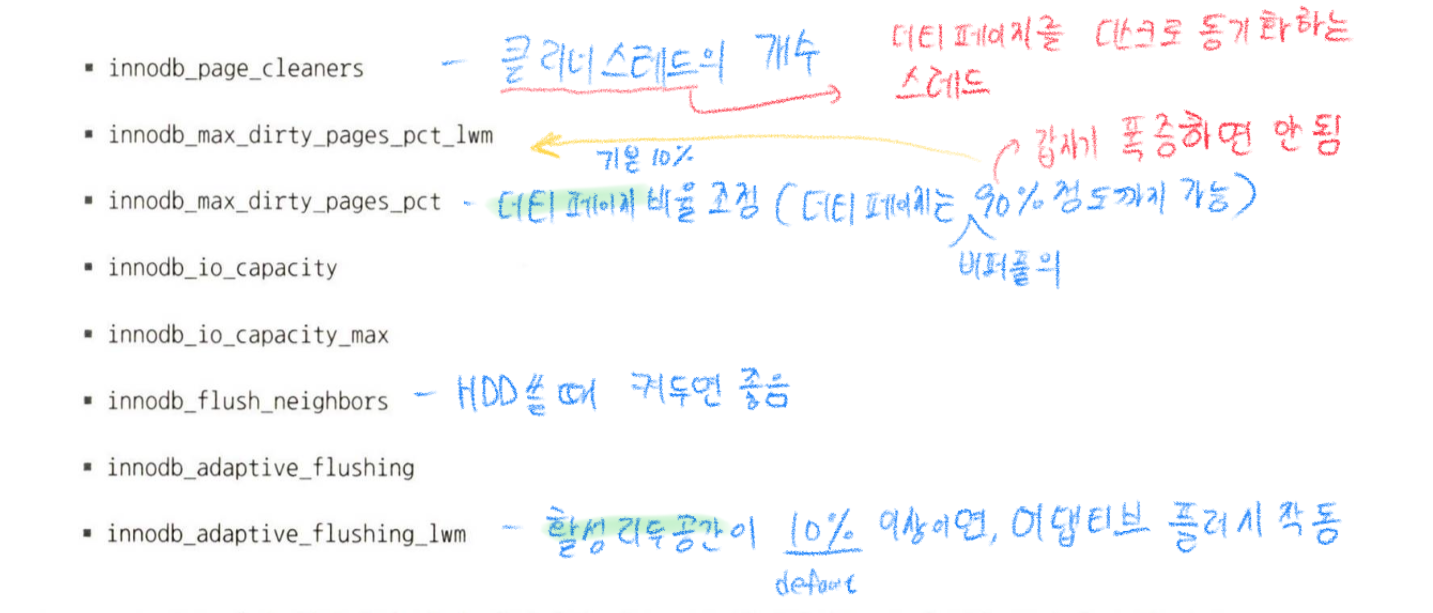 ▪ innodb_page_cleaners - 클리너스테드의 개수 더티 페이지를 디스크로 동기화하는
스레드
▪ innodb_max_dirty_pages_pct_lwm 갑자기 폭증하면 안 됨
기본 10%
▪ innodb_max_dirty_pages_pct - 더티 페이지 비율 조정 (더티 페이지는 90% 정도까지 가능)
버퍼풀의
▪ innodb_io_capacity
▪ innodb_io_capacity_max
▪ innodb_flush_neighbors - HDD쓸 때 켜두면 좋음
▪ innodb_adaptive_flushing
▪ innodb_adaptive_flushing_lwm - 활성 리두 공간이 10% 이상이면, 어댑티브 플러시 작동
default